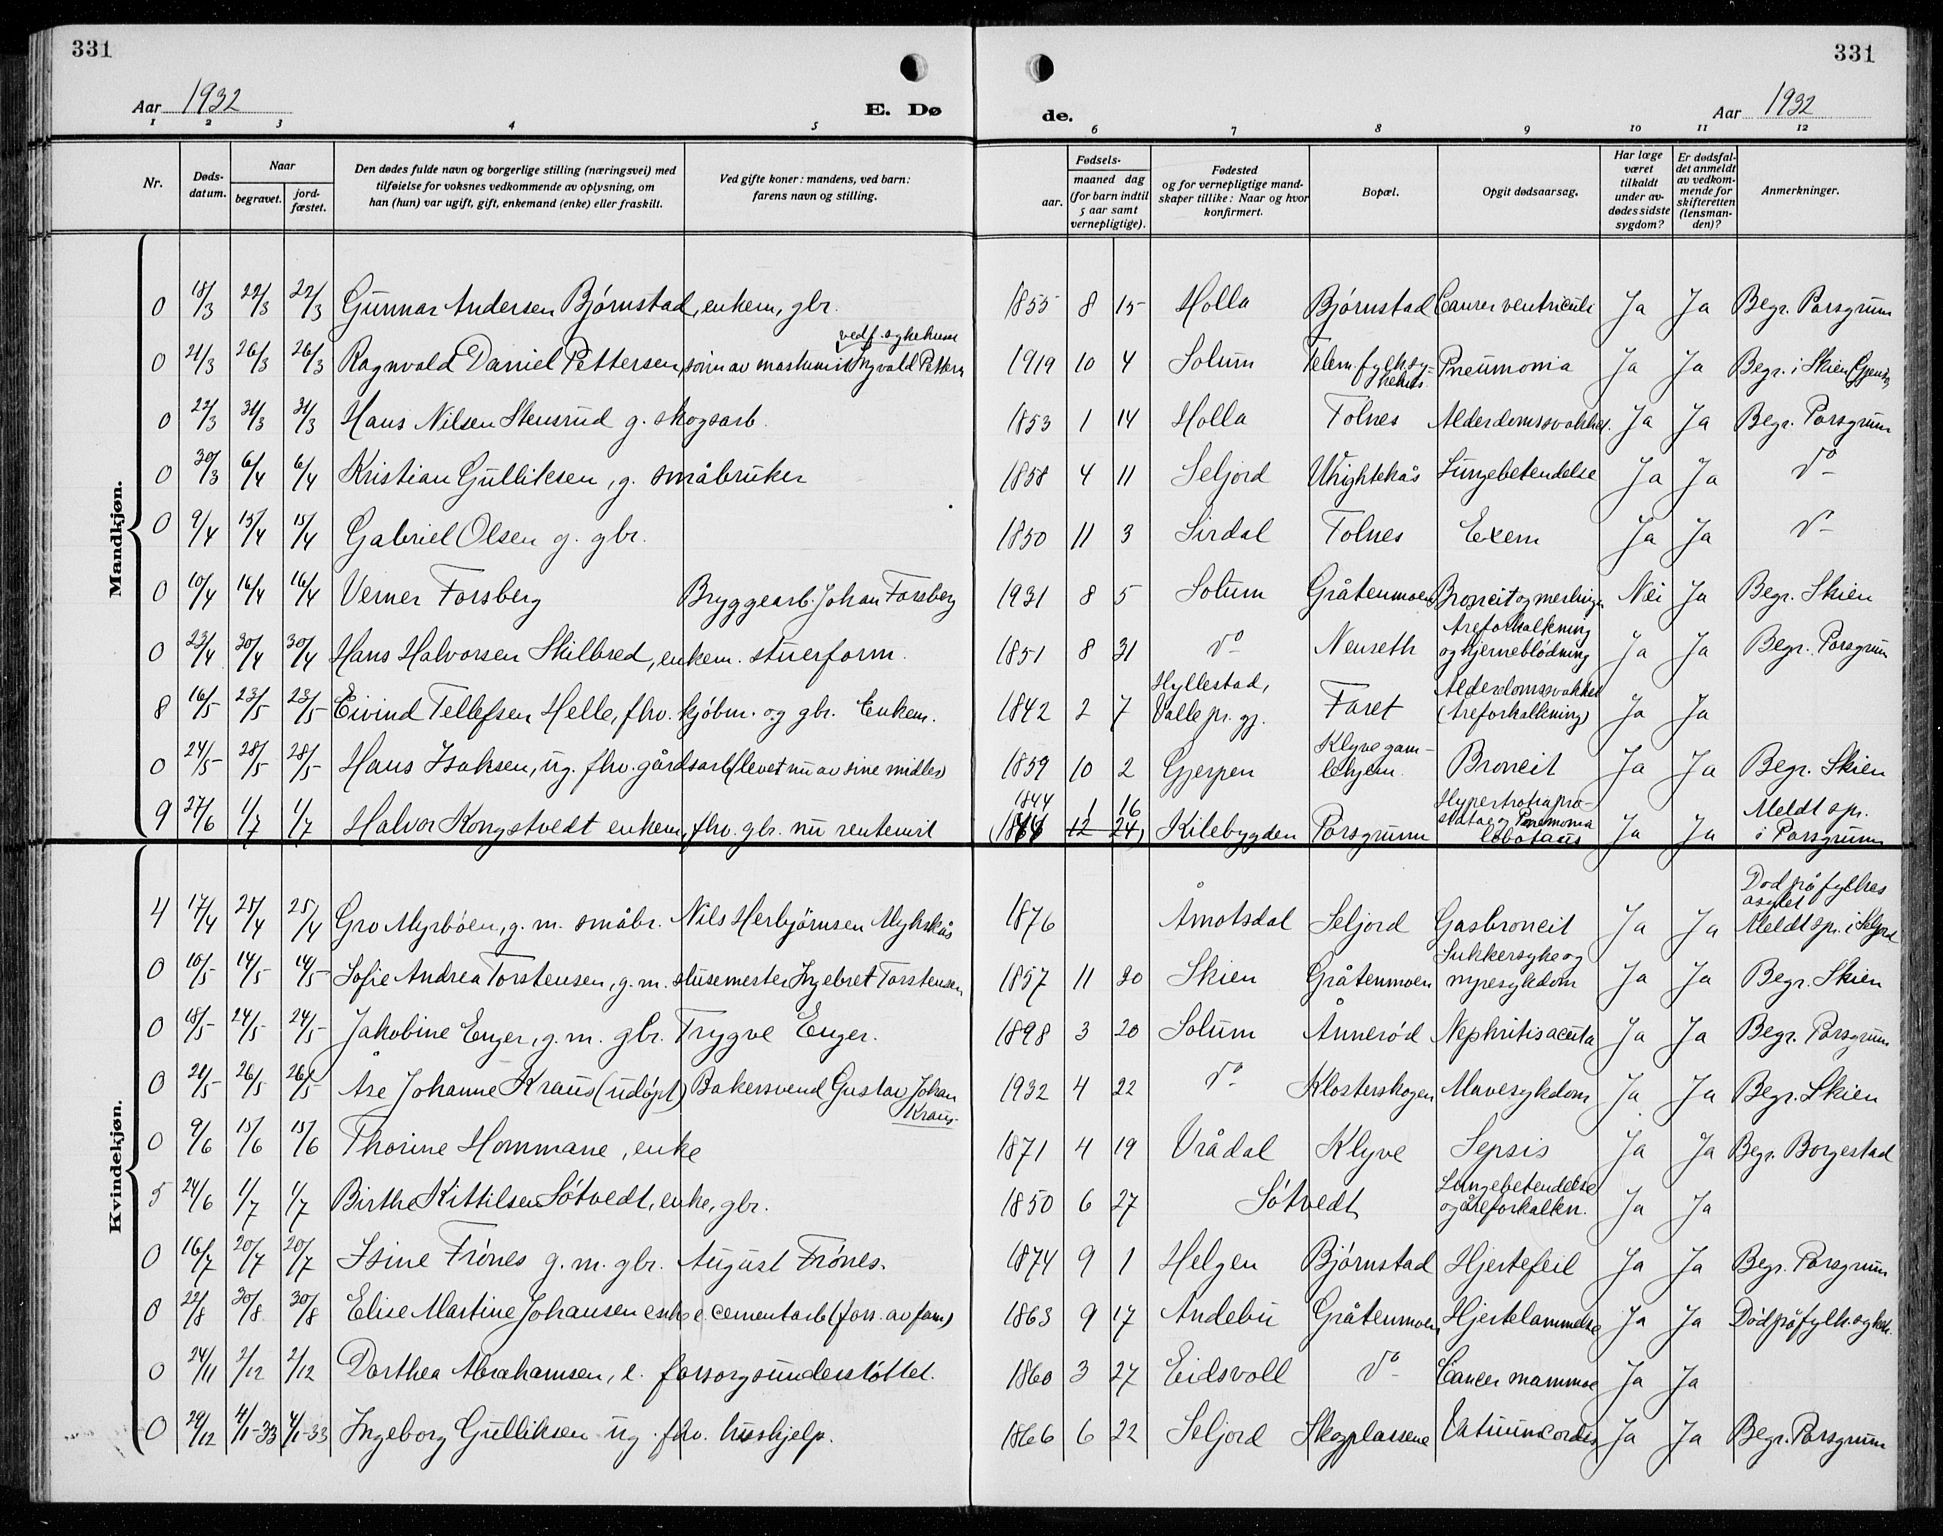 331
331
Aar 1932
E. Dø
de.
Aar 1932
1 2 3 4 5 6 7 8 9 10 11 12
Nr.
Døds-
datum.
Naar
begravet.
jord-
fæstet.
Den dødes fulde navn og borgerlige stilling (næringsvei) med
tilføielse for voksnes vedkommende av oplysning, om
han (hun) var ugift, gift, enkemand (enke) eller fraskilt.
Ved gifte koner: mandens, ved barn:
farens navn og stilling.
Fødsels-
aar.
maaned dag
(for barn indtil
5 aar samt
vernepligtige).
Fødested
og for vernepligtige mand-
skaper tillike: Naar og hvor
konfirmert.
Bopæl.
Opgit dødsaarsag.
Har læge
været
tilkaldt
under av-
dødes sidste
sygdom?
Er dødsfal-
det anmeldt
av vedkom-
mende for
skifteretten
(lensman-
den)?
Anmerkninger.
Mandkjøn.
0 18/3 22/3 22/3 Gunnar Andersen Bjørnstad, enkem, gbr. 1855 8 15 Holla Bjørnstad Cancer ventriculi Ja Ja Begr. Porsgrunn
0 21/3 26/3 26/3 Ragnvald Daniel Pettersen, sønn av maskinist Sigvald Pettersn vedf. sykehum 1919 10 4 Solum Telem. fylk. sykehus Pneumonia Ja Ja Begr. i Skien Gjensn
0 22/3 31/3 31/3 Hans Nilsen Stensrud g. skogsarb. 1853 1 14 Holla Folnes Alderdomssvakhet. Ja Ja Begr. Porsgrunn
0 30/3 6/4 6/4 Kristian Gulliksen, g. småbruker 1858 4 11 Seljord Wrightekås Lungebetendelse Ja Ja do
0 9/4 15/4 15/4 Gabriel Olsen g. gbr. 1850 11 3 Sirdal Folnes Exem Ja Ja do
0 10/4 16/4 16/4 Verner Forsberg Bryggearb. Johan Forsberg 1931 8 5 Solum Gråtenmoen Broncit og meslinger Nei Ja Begr. Skien
0 23/4 30/4 30/4 Hans Halvorsen Skilbred, enkem. stuerform. 1851 8 31 do Nenseth Åreforkalkning og hjerneblødning Ja Ja Begr. Porsgrunn
8 16/5 23/5 23/5 Eivind Tellefsen Helle, fhv. kjøbm. og gbr. Enkem. 1842 2 7 Hyllestad, Valle pr. gj. Faret Alderdomssvakhet (Åreforkalkning) Ja Ja
0 24/5 28/5 28/5 Hans Isaksen, ug. fhv. gårdsarb (levet nu av sine midler) 1859 10 2 Gjerpen Klyve gamlehjem. Broncit Ja Ja Begr. Skien
9 27/6 1/7 1/7 Halvor Kongstvedt enkem, fhv. gbr. nu rentenist 1844 1 16 (1844 12 24) Kilebygden Porsgrunn Hypertrofia prostatae og Pneumonia Ja Ja Meldt spr. i Porsgrunn
Kvindekjøn.
4 17/4 25/4 25/4 Gro Myrbøen, g. m. småbr. Nils Herbjørnsen Mykskås 1876 Åmotsdal Seljord Gasbroncit Ja Ja Død på fylkes asylet Meldt spr. i Seljord
0 10/5 14/5 14/5 Sofie Andrea Torstensen, g. m. slusemester Ingebret Torstensen 1857 11 20 Skien Gråtenmoen Sukkersyke og nyresykdom Ja Ja Begr. Skien
0 18/5 24/5 24/5 Jakobine Enger, g. m. gbr. Trygve Enger. 1898 3 20 Solum Ånnerød Nephritis acuta Ja Ja Begr. Porsgrunn
0 21/5 26/5 26/5 Åse Johanne Kraus (udøpt) Bakersvend Gustav Johan Kraus 1932 4 22 do Klosterskogen Mavesykdom Ja Ja Begr. Skien
0 9/6 15/6 15/6 Thorine Hommane, enke 1871 4 19 Vrådal Klyve Sepsis Ja Ja Begr. Borgestad
5 24/6 1/7 1/7 Birthe Kittilsen Søtvedt, enke, gbr. 1850 6 27 Søtvedt Lungebetendelse og åreforkalkn. Ja Ja
0 16/7 20/7 20/7 Isine Frønes g. m. gbr. August Frønes. 1874 9 1 Helgen Bjørnstad Hjertefeil Ja Ja Begr. Porsgrunn
0 22/8 30/8 30/8 Elise Martine Johansen enke e. cementarb (fors. av fam) 1863 9 17 Andebu Gråtenmoen Hjertelammelse Ja Ja Død på fylk. sykeh.
0 24/11 2/12 2/12 Dorthea Abrahamsen, e. forsorgsunderstøttet. 1860 3 27 Eidsvoll do Cancer mammae Ja Ja
0 29/12 4/1-33 4/1-33 Ingeborg Gulliksen ug. fhv. hushjelp. 1866 6 22 Seljord Skogplassene Vitium cordis Ja Ja Begr. Porsgrunn